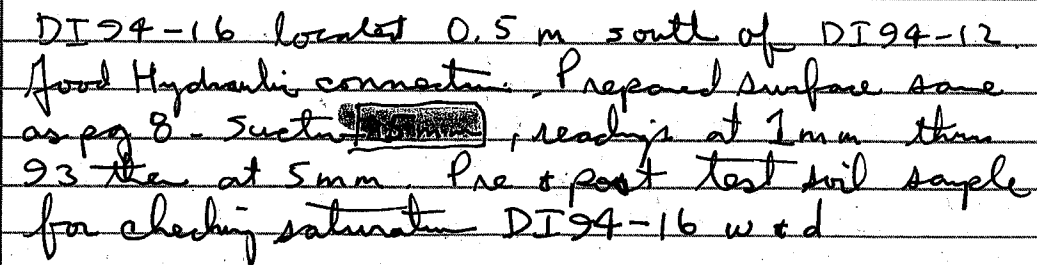 DI94-16 located 0.5 m south of DI94-12.
Good Hydraulic connection. Prepared surface same
as pg 8 - Suction , readings at 1mm thru
93 then at 5mm. Pre + post test soil sample
for checking saturation DI94-16 w + d